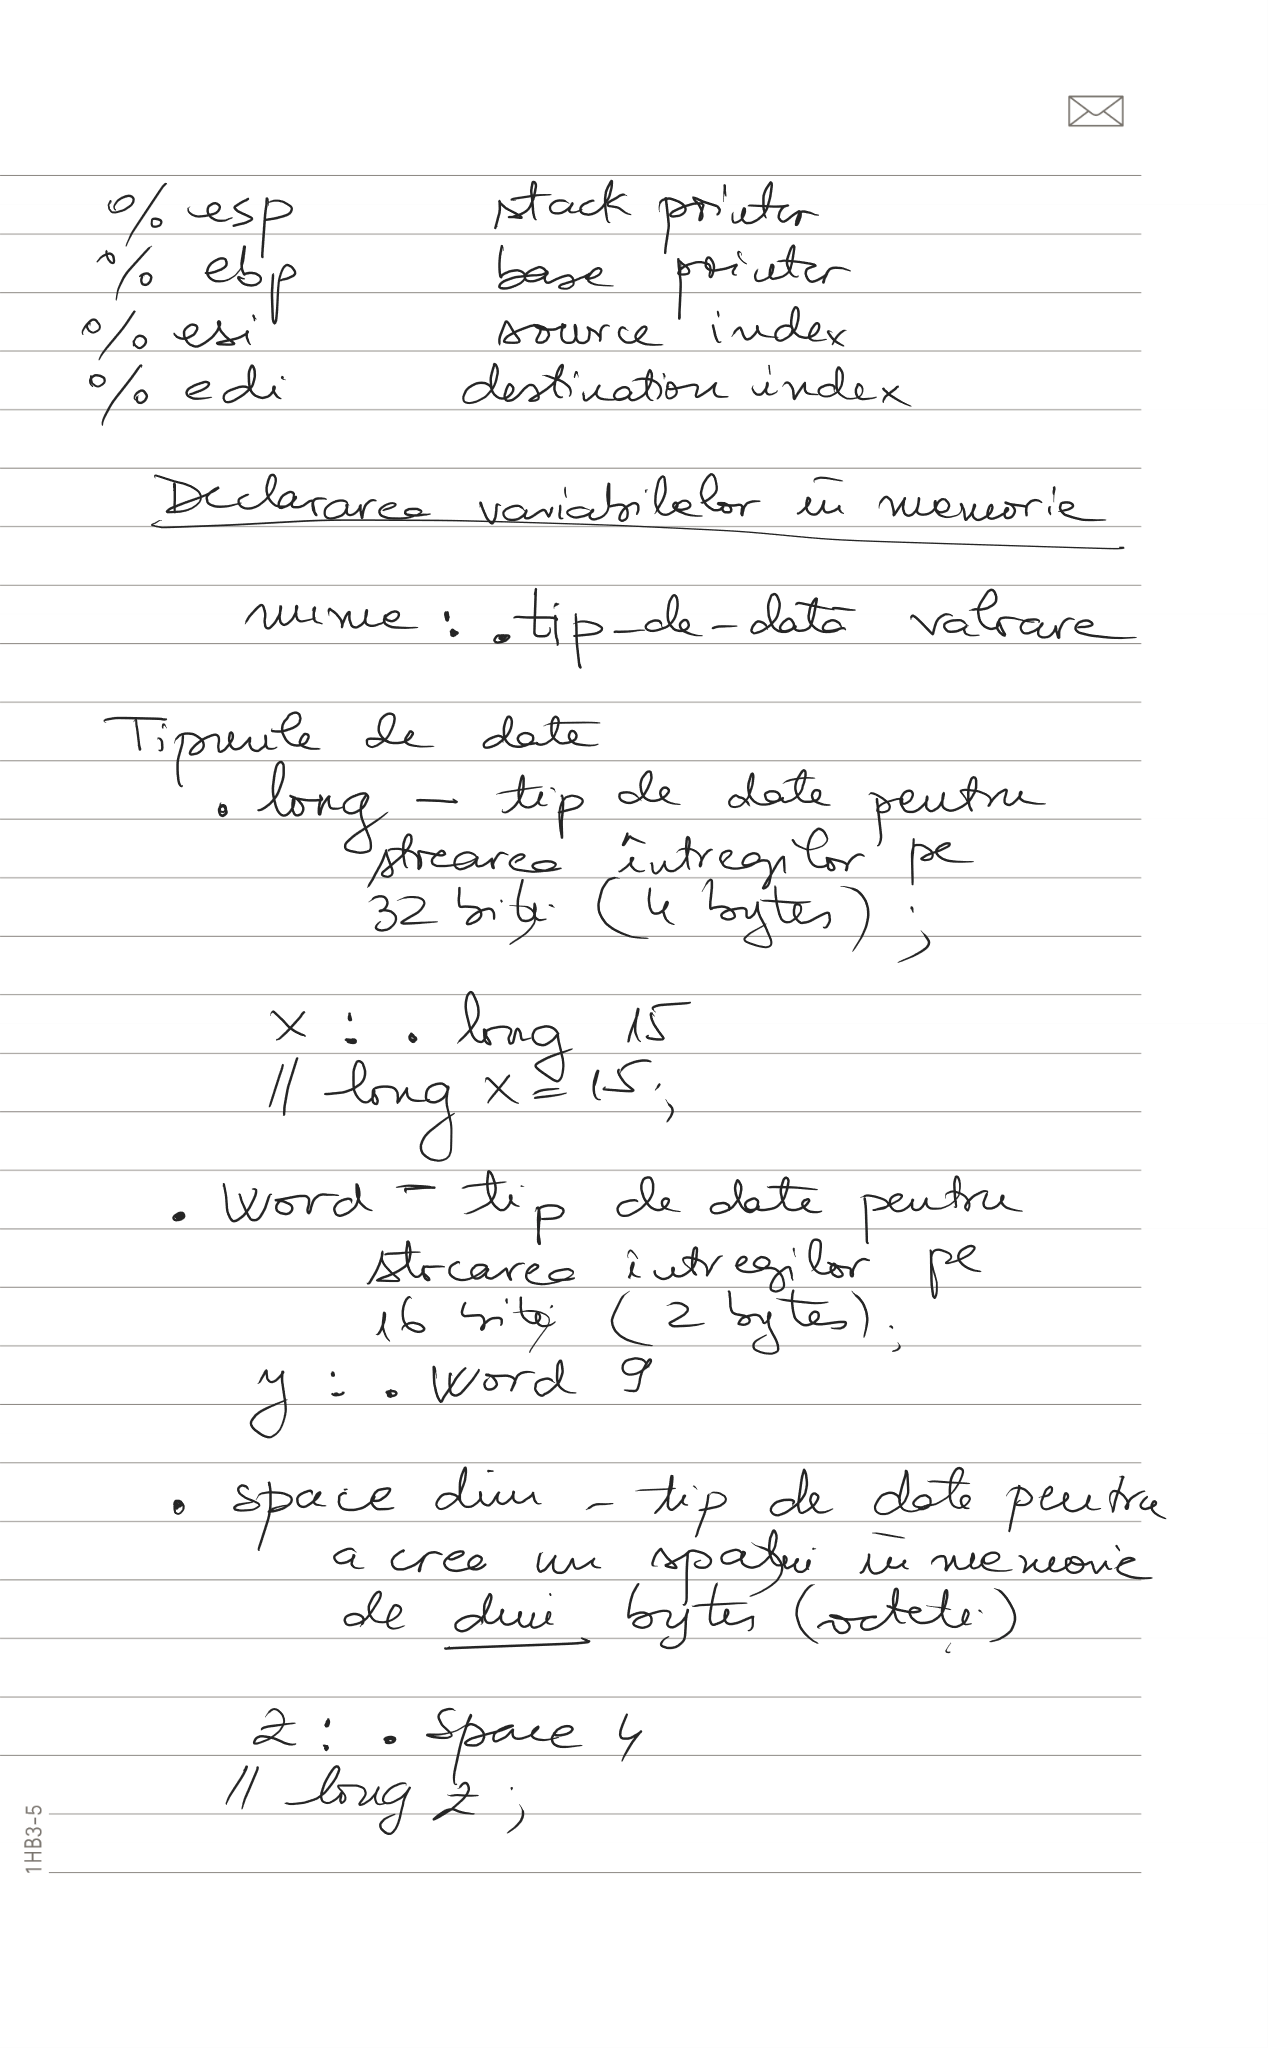 % esp stack pointer
% ebp base pointer
% esi source index
% edi destination index
Declararea variabilelor în memorie
nume : .tip-de-dată valoare
Tipurile de date
. long – tip de date pentru
stocarea întregilor pe
32 biți (4 bytes) ;
x : . long 15
// long x = 15;
. word – tip de date pentru
stocarea întregilor pe
16 biți (2 bytes);
y : . word 9
. space dim – tip de date pentru
a crea un spațiu în memorie
de dim bytes (octeți)
z : . space 4
// long z ;
1HB3-5